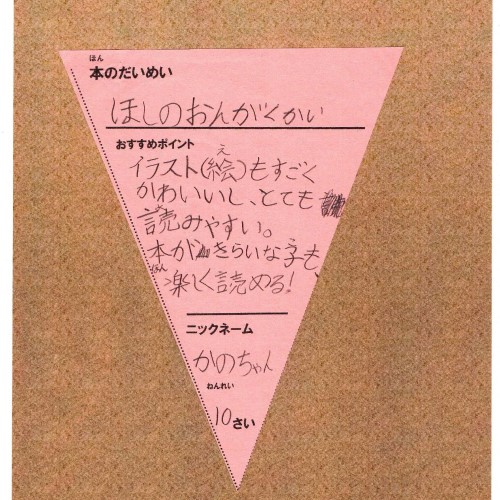 ほん
本のだいめい
ほしのおんがくかい
おすすめポイント
え
イラスト(絵)もすごく
かわいいし、とても
読みやすい。
本がきらいな子も、
ほん
楽しく読める!
ニックネーム
かのちゃん
ねんれい
10さい